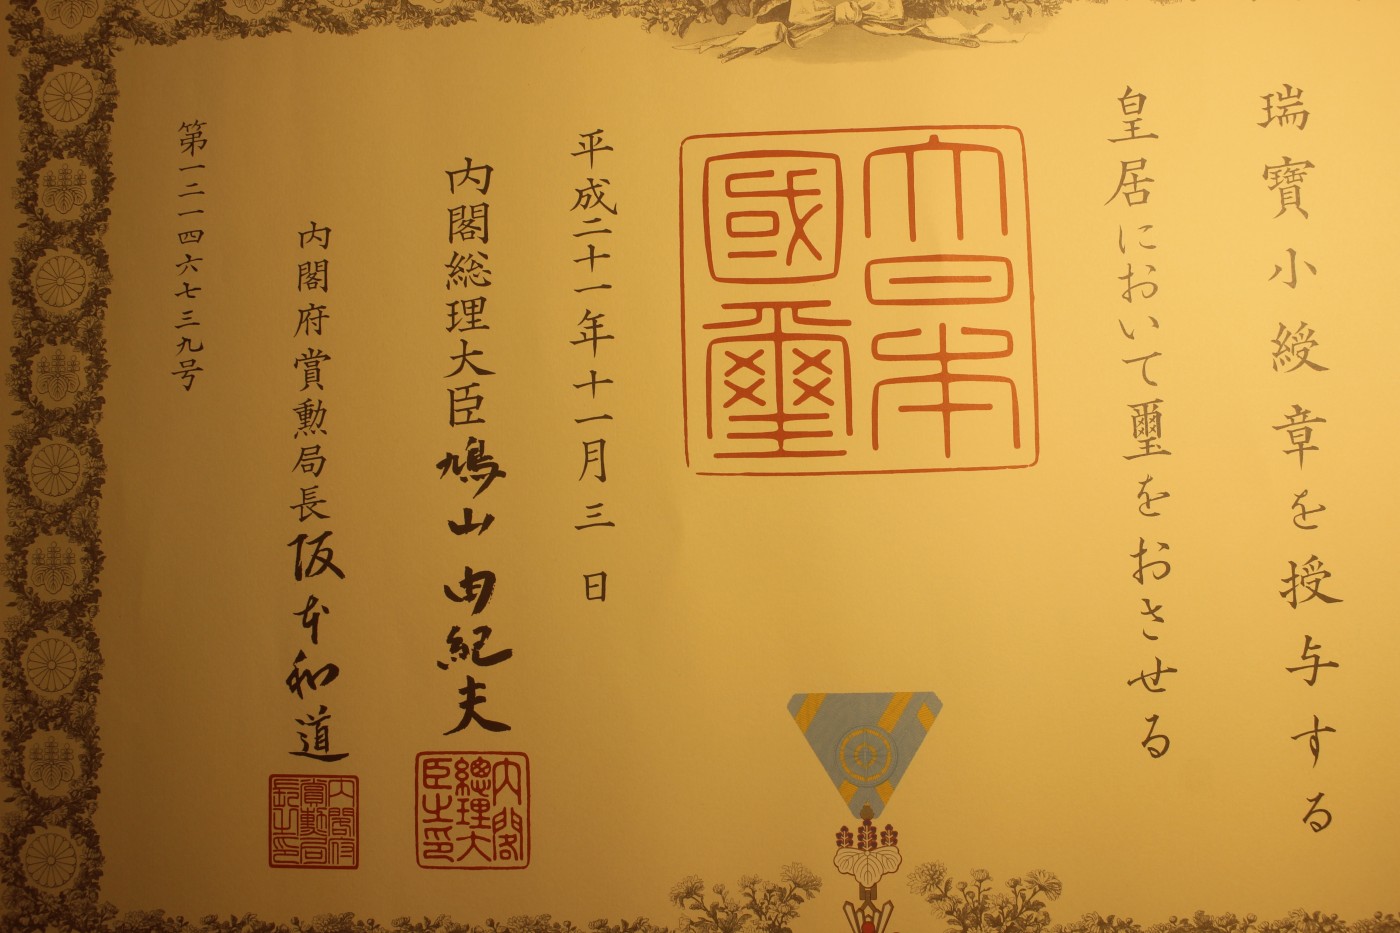 瑞寶小綬章を授与する
皇居において璽をおさせる
大日本
國璽
平成二十一年十一月三日
内閣総理大臣鳩山由紀夫
内閣
總理大
臣之印
内閣府賞勲局長阪本和道
内閣府
賞勲局
長之印
第一二一四六七三九号